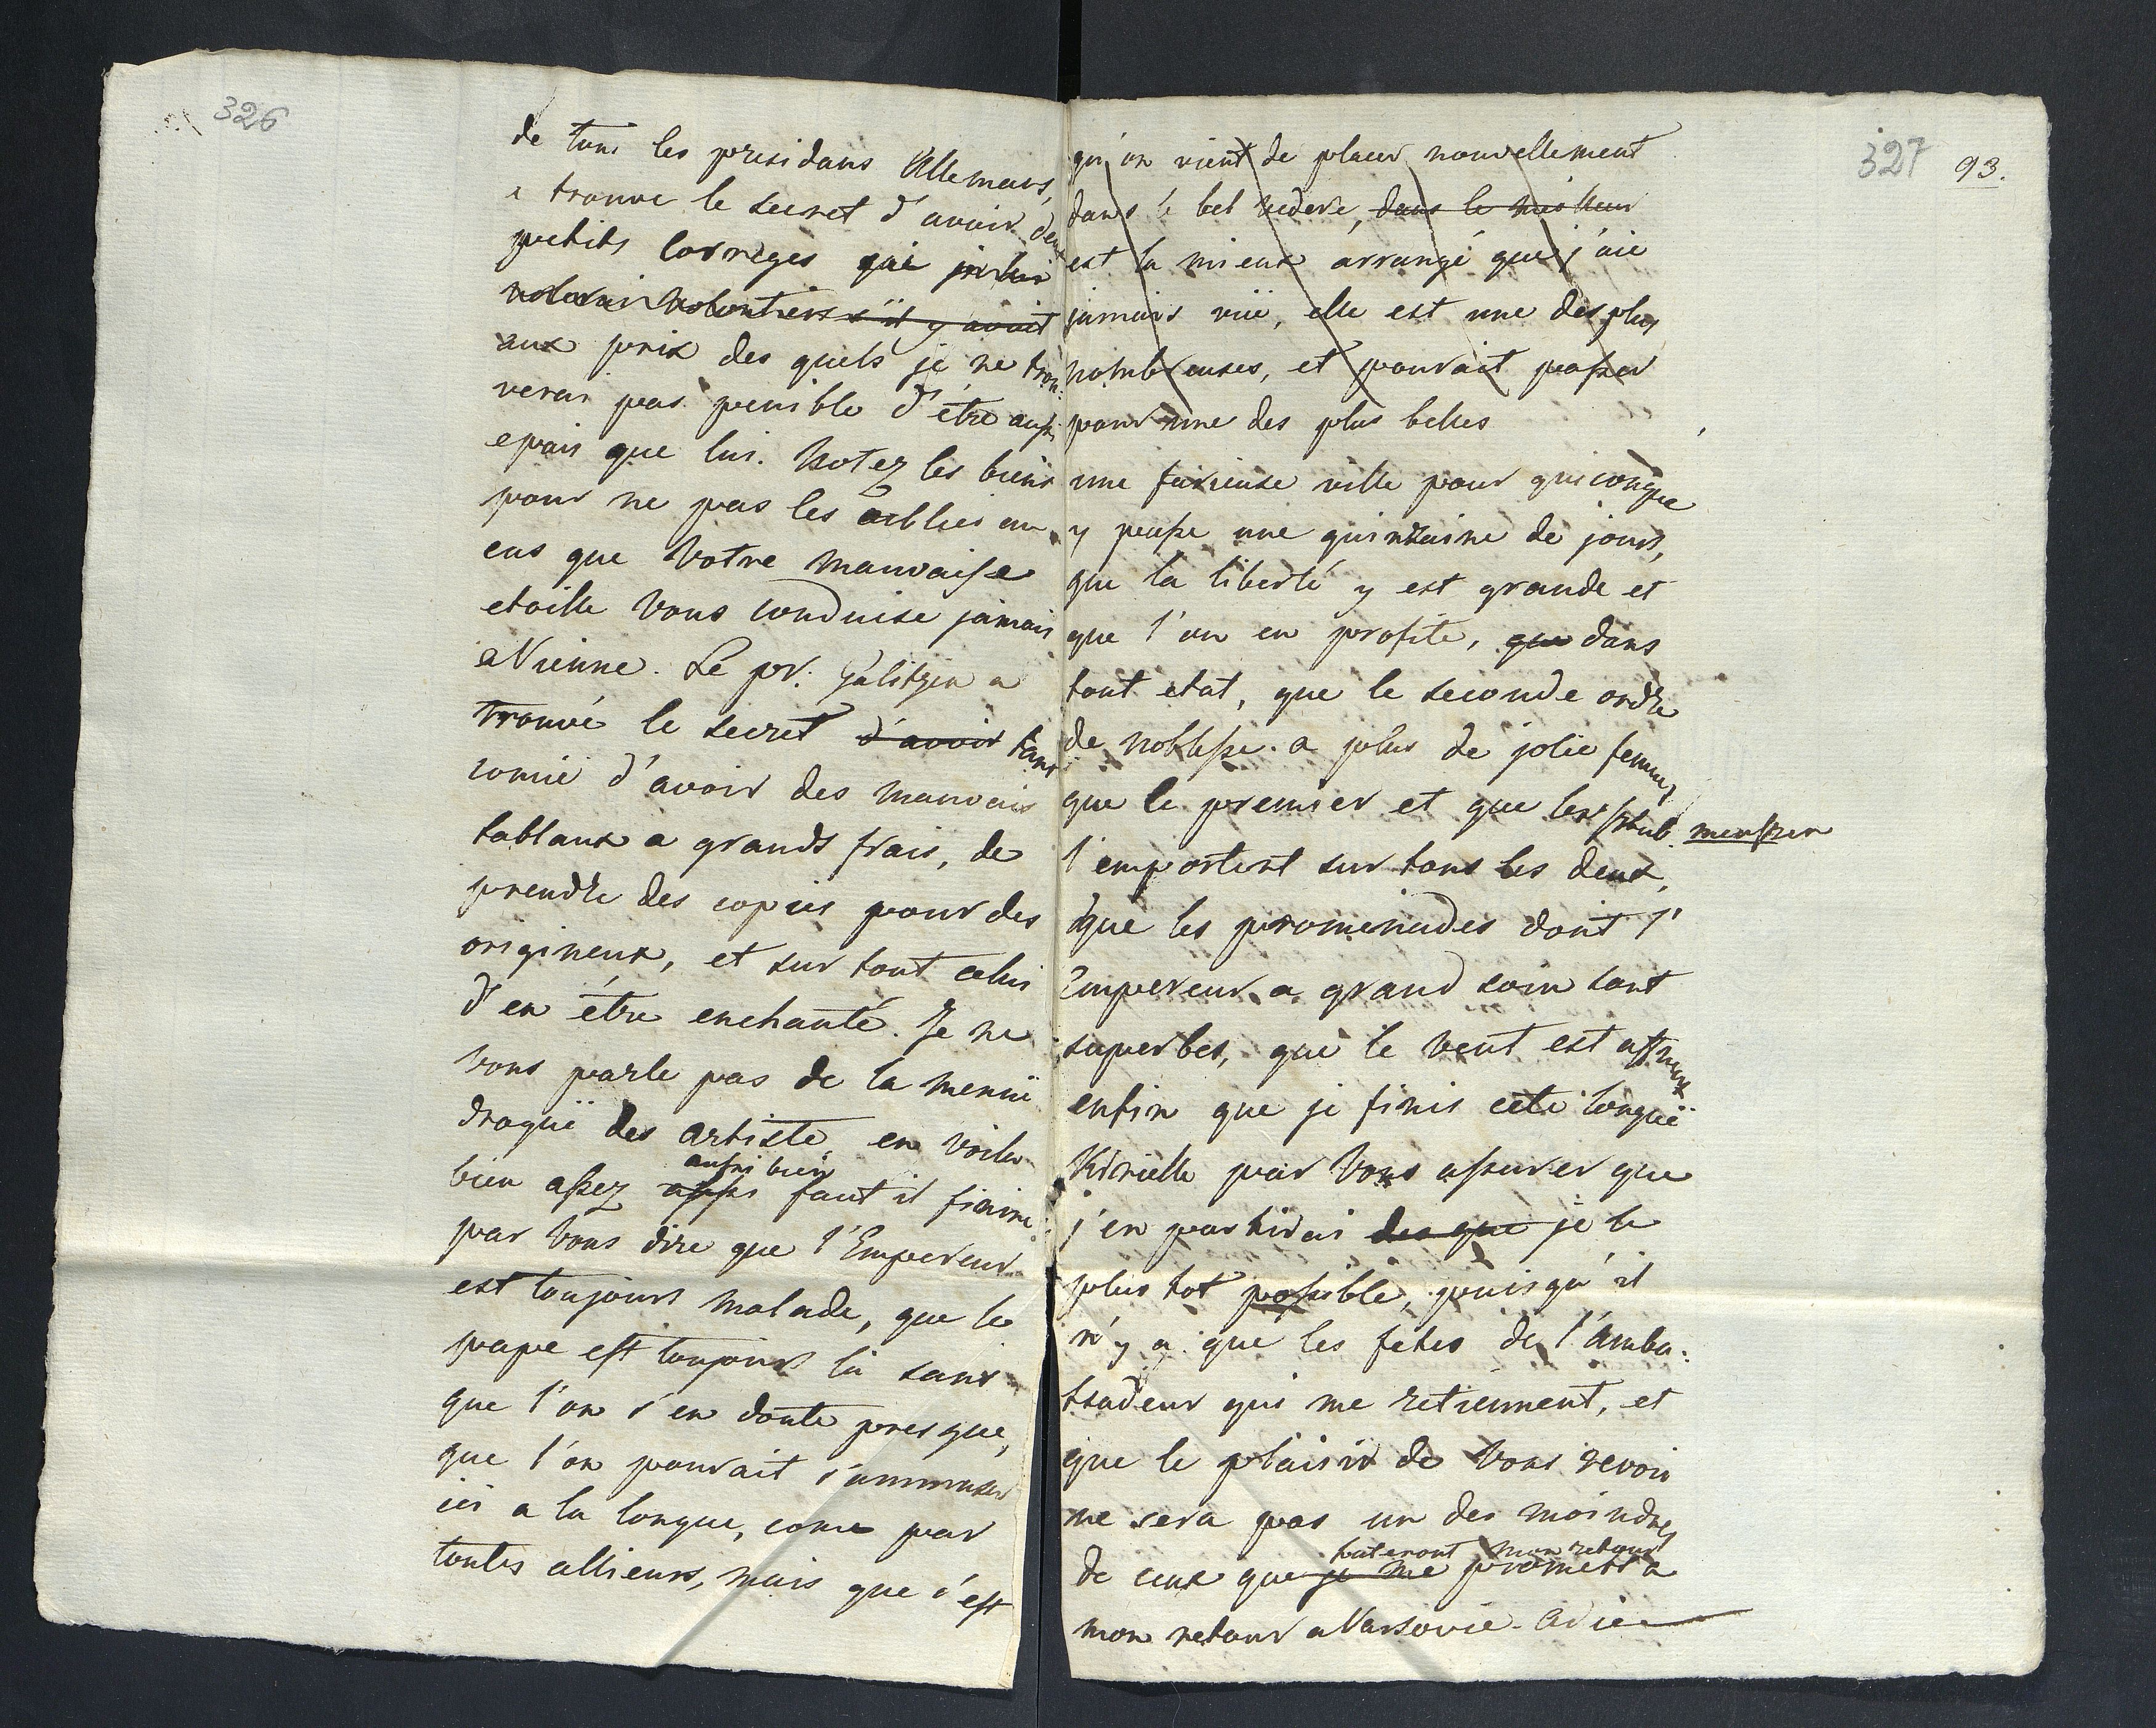 326
de tous les presidans Allemans,
a trouvé le secret d'avoir deux
petits Correges que je lui
volerai volontiers s'il y avait
aux prix des quels je ne trou:
verai pas penible d'être aussi
epais que lui. Notez les biens
pour ne pas les oublier au
cas que Votre mauvaise
etoille vous conduise jamais
a Vienne. Le pr. Galitzin a
trouvé le secret d'avoir tant
comue d'avoir des mauvais
tablaux a grands frais, de
prendre des copies pour des
origineux, et sur tout celui
d'en être enchanté. Je ne
vous parle pas de la menuë
droguë des artiste en voila
aussi bien
bien assez aussi faut il finire
par vous dire que l'Empereur
est toujours malade, que le
pape est toujours là sans
que l'on s'en doute presque,
que l'on pourait s'ammuser
ici a la longue, come par
toutes allieurs, mais que c'est
327 93.
qu'on vient de placer nouvellement
dans le bel vedere, dans le meilleur
est la mieux arrangé que j'aie
jamais vuë, elle est une des plus
nombreuses, et pourait passer
pour une des plus belles
une furieuse ville pour quiconque
y passe une quinzaine de jours,
que la liberté y est grande et
que l'on en profite, que dans
tout etat, que le seconde ordre
de noblesse a plus de jolie femmes
que le premier et que les stub. menscher
l'emportent sur tous les deux,
que les promenades dont l'
Empereur a grand soin sont
superbes, que le vent est affreux
enfin que je finis cete longuë
Kirielle par vous assurer que
j'en partirai des que je le
plus tot possible, puisqu'il
n'y a que les fetes de l'amba:
ssadeur qui me retiennent, et
que le plaisir de vous revoir
ne sera pas un des moindres
hateront mon retour
de ceux que je me promets a
mon retour a Varsovie. Adieu